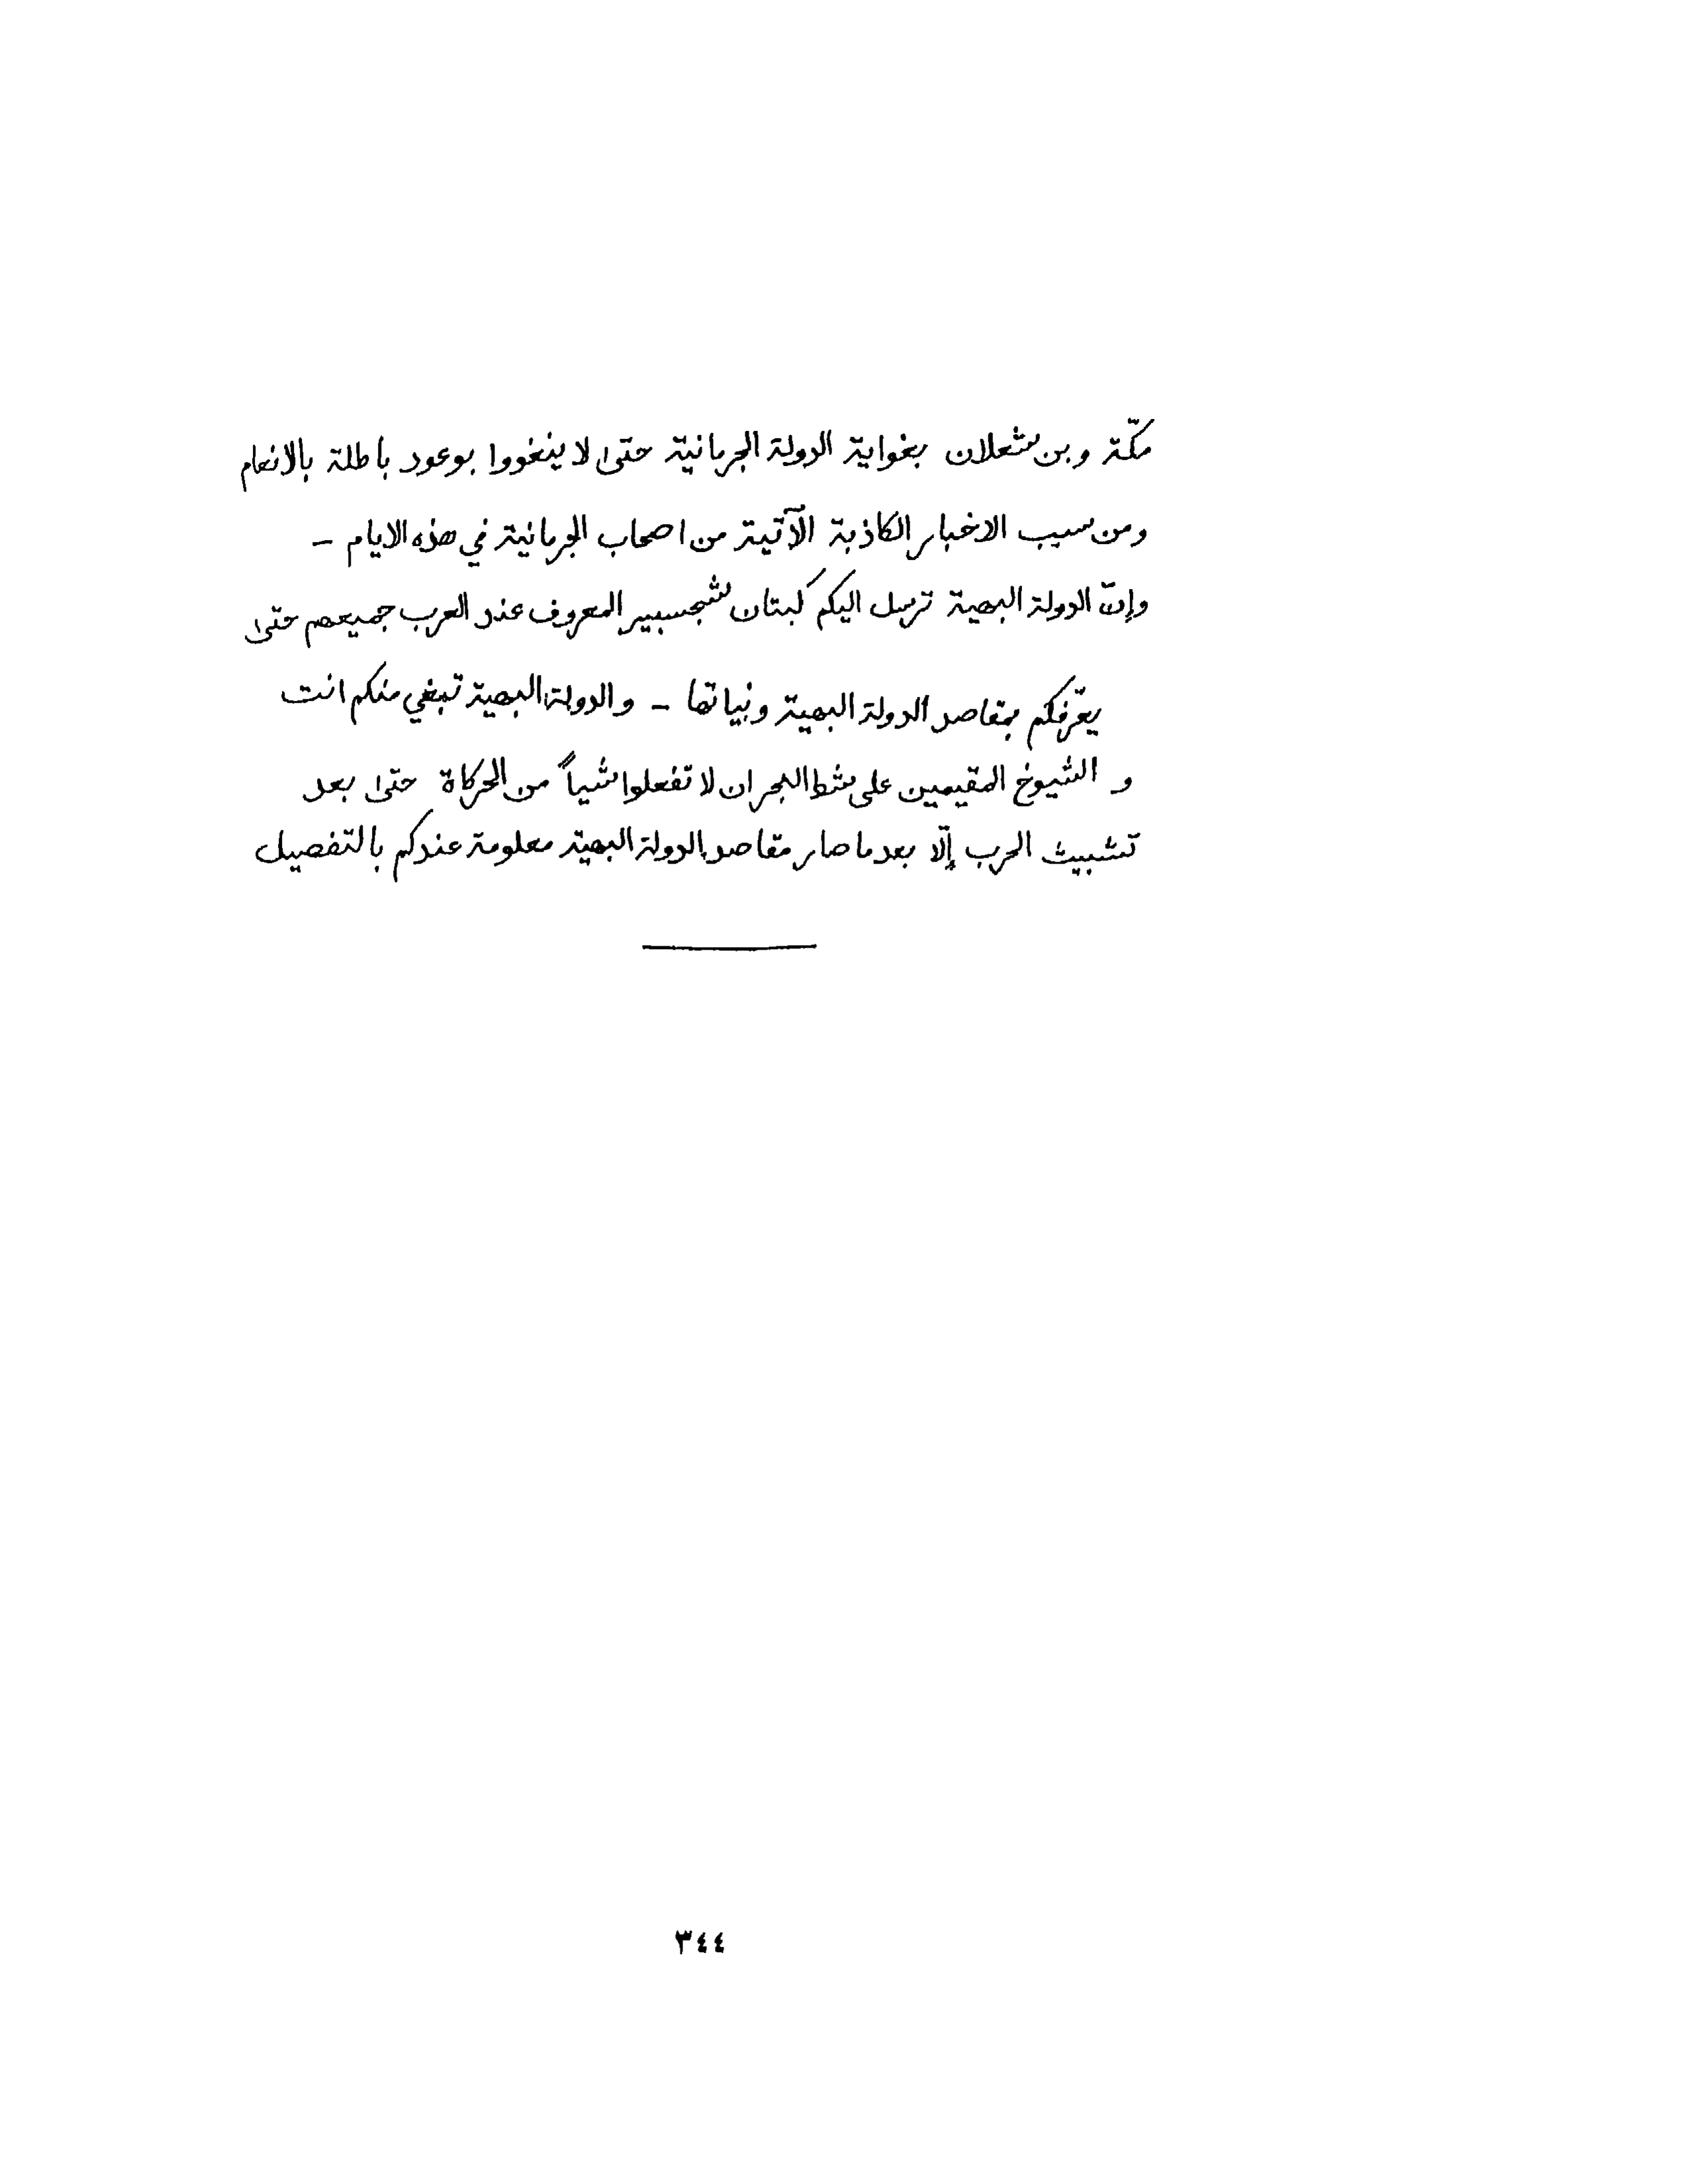 مكّة وبن شعلان بغواية الدولة الجرمانية حتى لا ينغووا بوعود باطلة بالانعام
ومن سبب الاخبار الكاذبة الآتية من اصحاب الجرمانية في هذه الايام –
وإنّ الدولة البهية ترسل اليكم كبتان شجسبير المعروف عند العرب جميعهم حتى
يعرّفكم بمقاصد الدولة البهية ونياتها – والدولة البهية تبغي منكم انت
و الشيوخ المقيمين على شط البحر ان لا تفعلوا شياً من الحركاة حتى بعد
تشبيث الحرب إلّا بعد ما صار مقاصد الدولة البهية معلومة عندكم بالتفصيل
٣٤٤